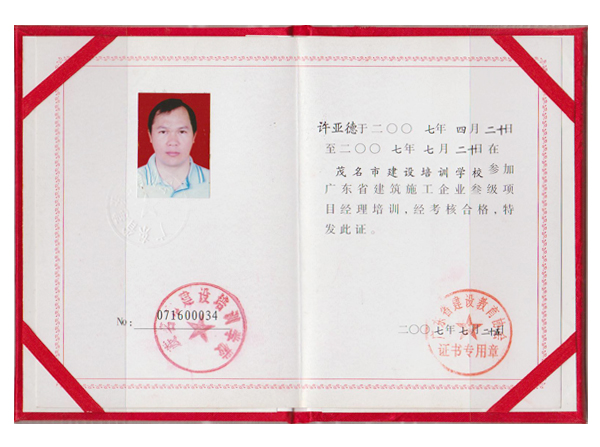 No: 071600034
茂名市建设培训学校
许亚德于二〇〇七年四月二十日
至二〇〇七年七月二十日在
茂名市建设培训学校参加
广东省建筑施工企业叁级项
目经理培训,经考核合格,特
发此证。
广东省建设教育协会
证书专用章
二〇〇七年七月二十五